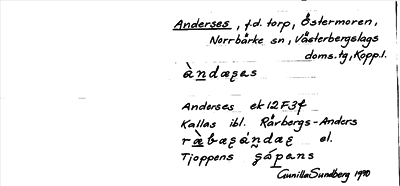 Anderses, f.d. torp, Östermoren,
Norrbärke sn, Västerbergslags
doms.tg, Kopp.l.
àndæʂes
Anderses ek 12F3f
Kallas ibl. Rårbergs-Anders
el.
Tjoppens
Gunilla Sundberg 1990